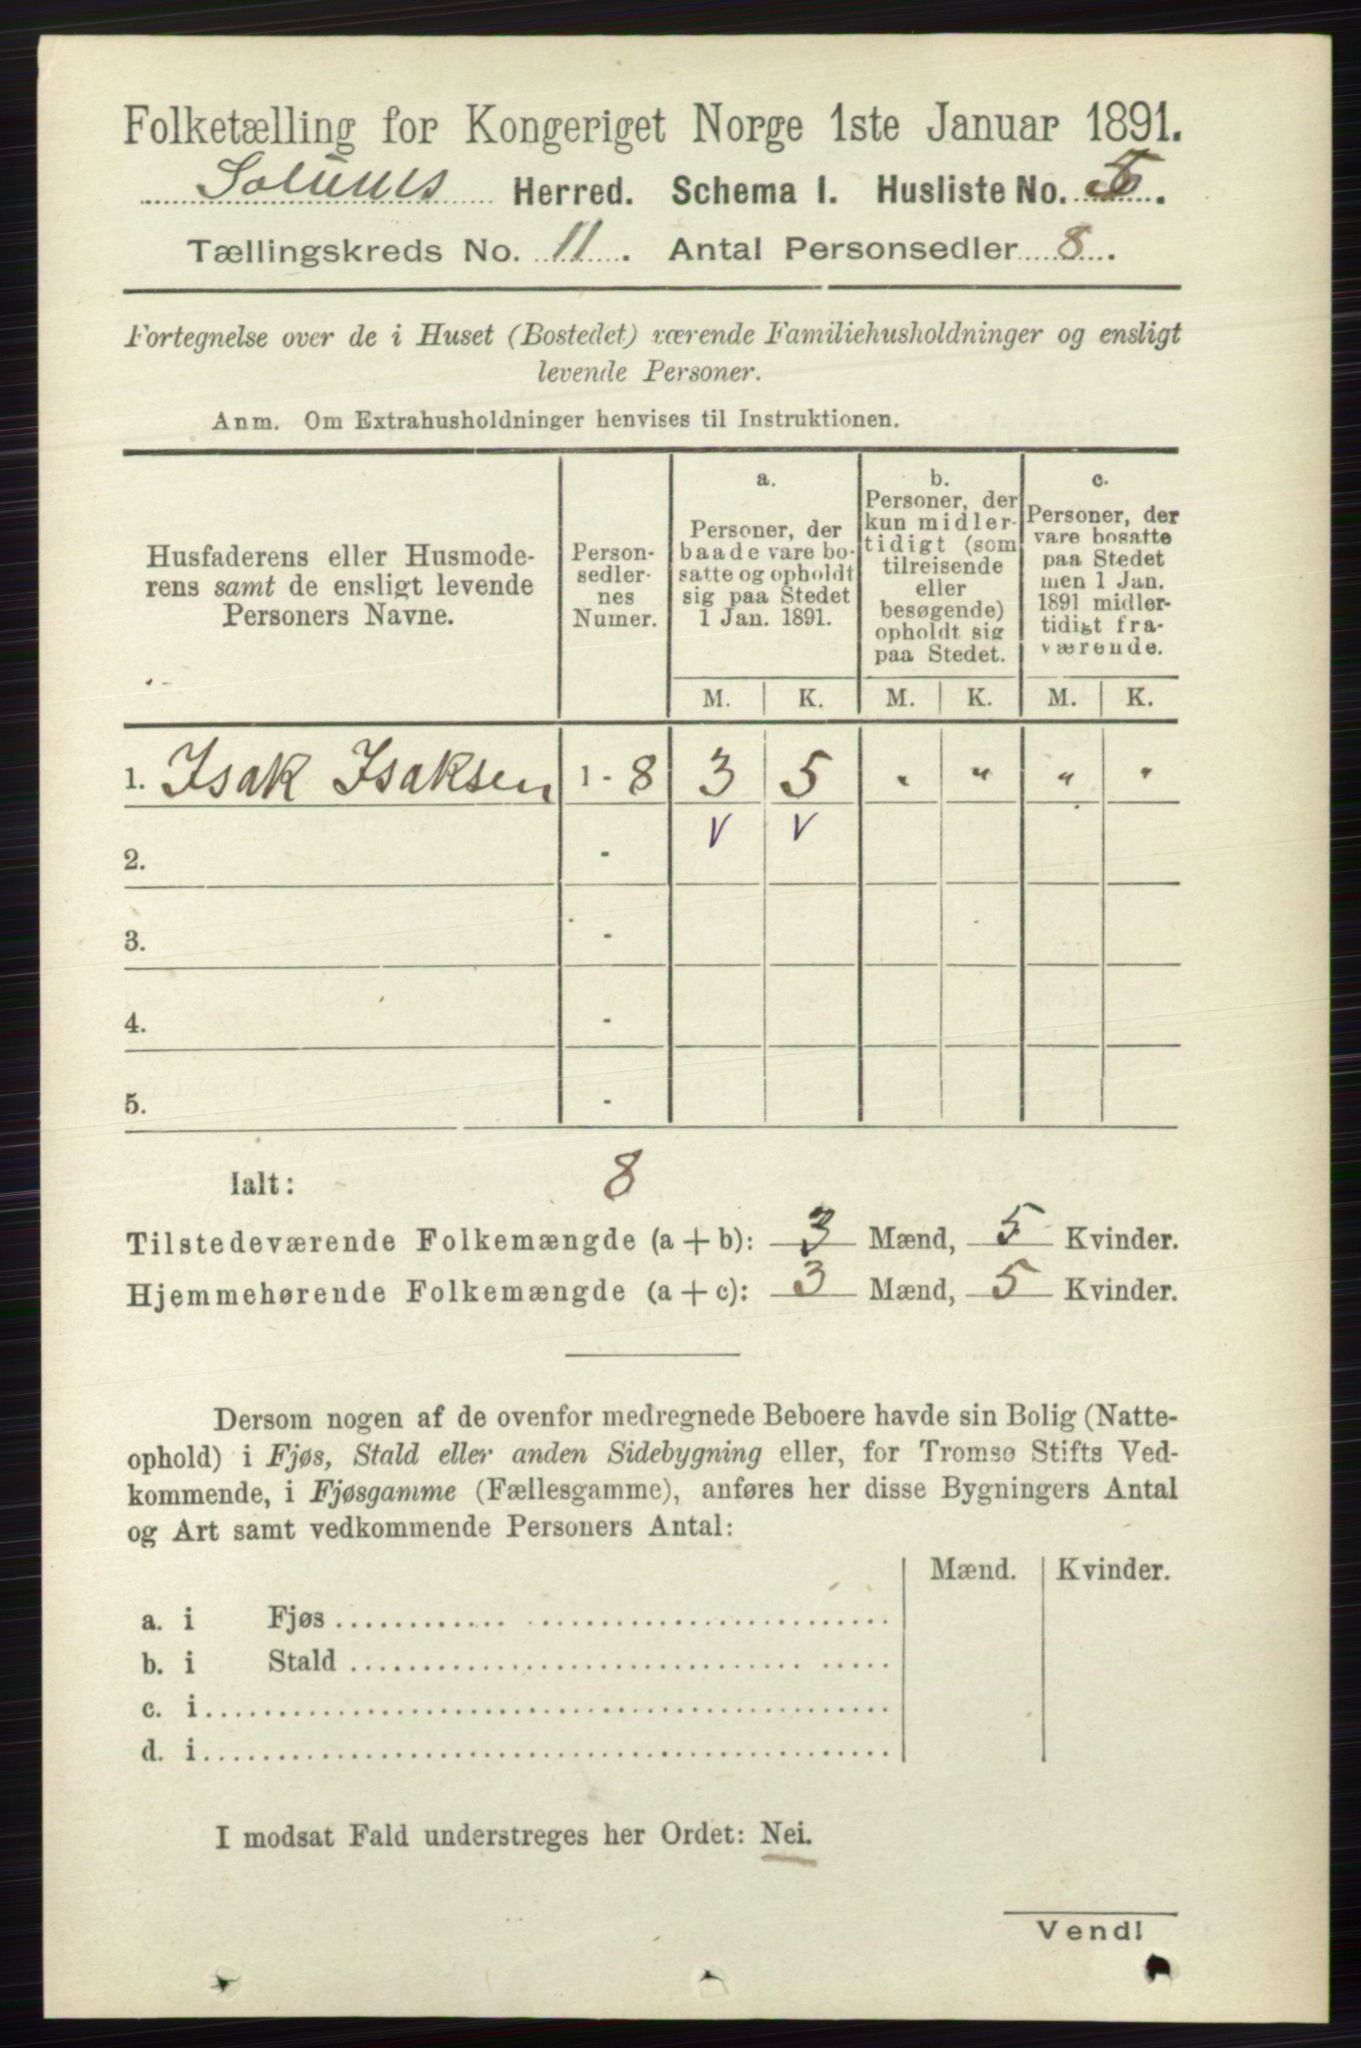 Folketælling for Kongeriget Norge 1ste Januar 1891.
Solums Herred. Schema I. Husliste No.
Tællingskreds No. 11. Antal Personsedler 8.
Fortegnelse over de i Huset (Bostedet) værende Familiehusholdninger og ensligt
levende Personer.
Anm. Om Extrahusholdninger henvises til Instruktionen.
Husfaderens eller Husmode-
rens samt de ensligt levende
Personers Navne.
Person-
sedler-
nes
Numer.
a.
Personer, der
baade vare bo-
satte og opholdt
sig paa Stedet
1 Jan. 1891.
b.
Personer, der
kun midler-
tidigt (som
tilreisende
eller
besøgende)
opholdt sig
paa Stedet.
c.
Personer, der
vare bosatte
paa Stedet
men 1 Jan.
1891 midler-
tidigt fra-
værende.
M. K. M. K. M. K.
1. Isak Isaksen 1 - 8 3 5 " " " "
2. - v v
3. -
4. -
5. -
Ialt: 8
Tilstedeværende Folkemængde (a + b): 3 Mænd, 5 Kvinder.
Hjemmehørende Folkemængde (a + c): 3 Mænd, 5 Kvinder.
Dersom nogen af de ovenfor medregnede Beboere havde sin Bolig (Natte-
ophold) i Fjøs, Stald eller anden Sidebygning eller, for Tromsø Stifts Ved-
kommende, i Fjøsgamme (Fællesgamme), anføres her disse Bygningers Antal
og Art samt vedkommende Personers Antal:
Mænd. Kvinder.
a. i Fjøs
b. i Stald
c. i
d. i
I modsat Fald understreges her Ordet: Nei.
Vend!